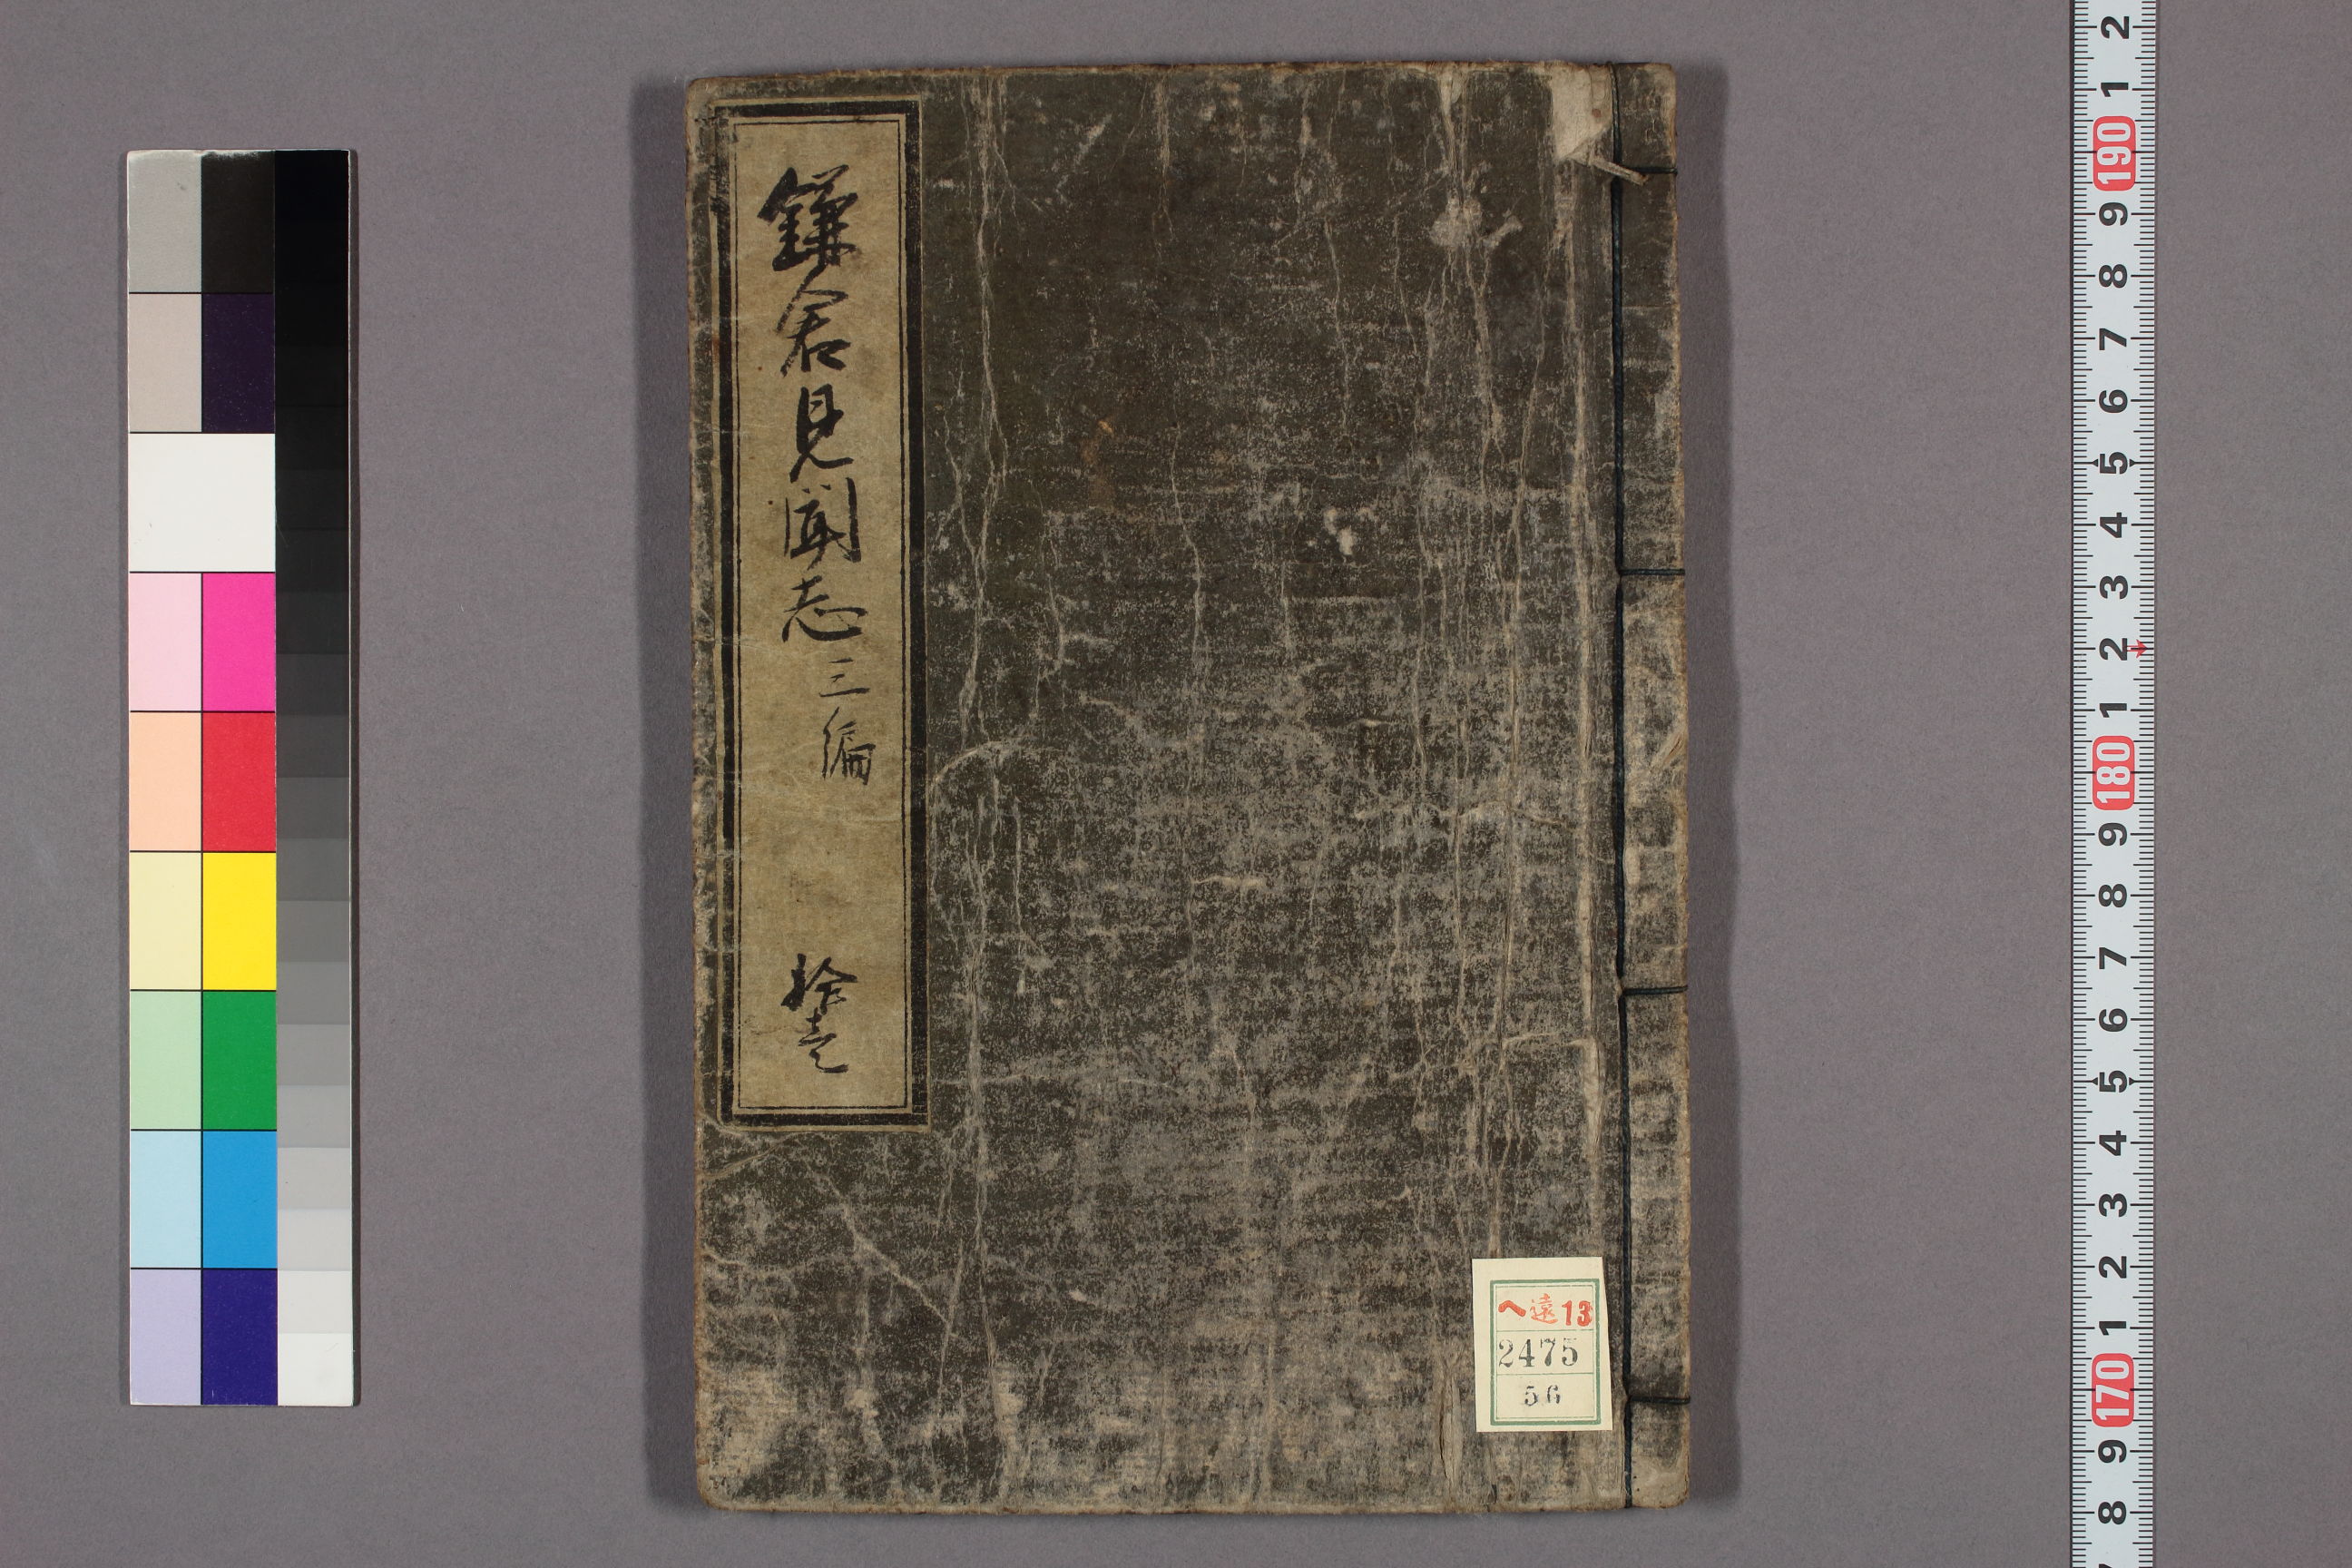 鎌倉見聞志 三編 拾壱
へ遠13
2475
56
2
1
190
9
8
7
6
5
4
3
2
1
180
9
8
7
6
5
4
3
2
1
170
9
8